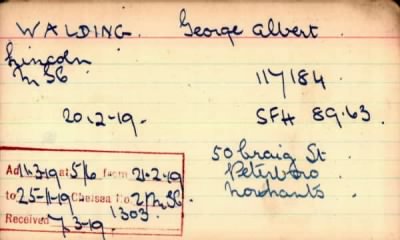 WALDING. George Albert.
Lincoln
M 36 117184.
20.2-19. SFH 89.63.
50 Craig St.
Peterboro
Northants.
Ad 14.3-19 at 5/6 from 21-2-19
to 25-11-19 Chelsea No. 2/M36.
1303.
Received 7.3-19.